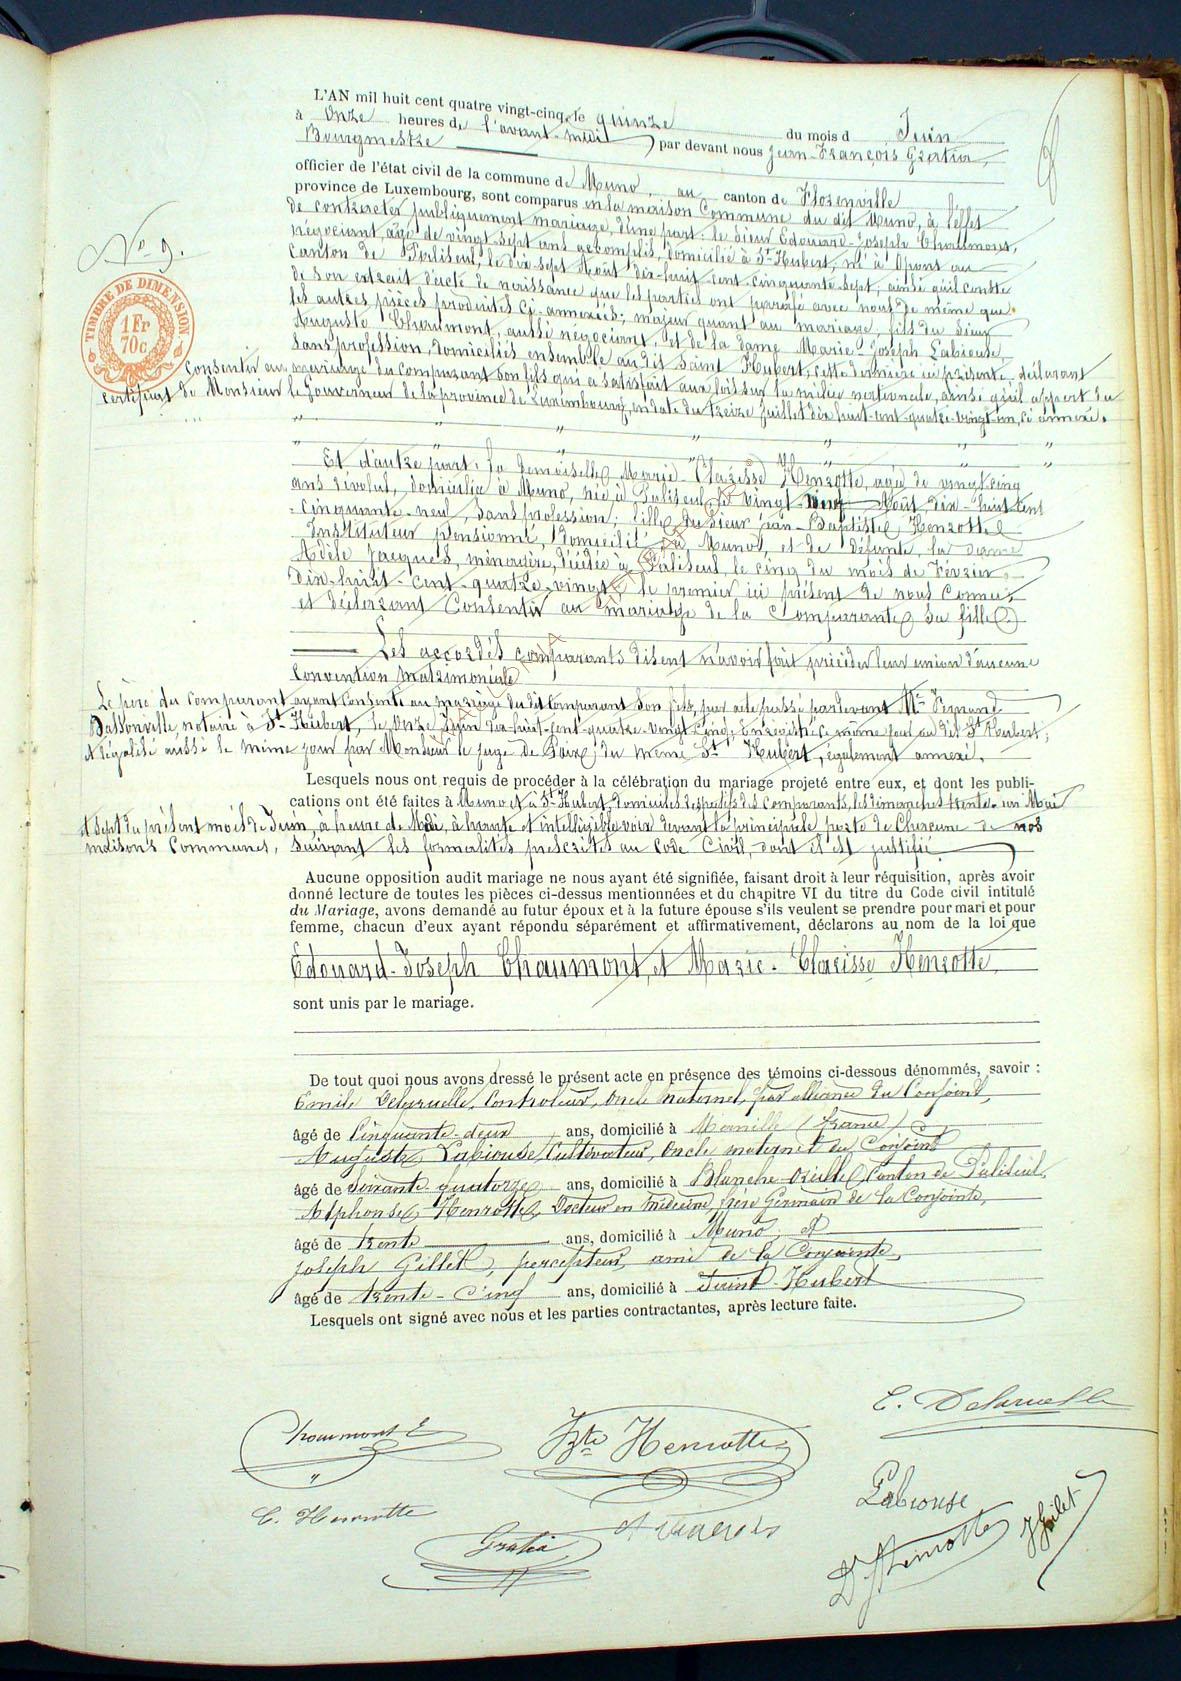 L'AN mil huit cent quatre vingt-cinq, le quinze du mois d Juin
à Onze heures de l'avant-midi par devant nous Jean-François Gratia,
Bourgmestre
officier de l'état civil de la commune de Muno, au canton de Florenville
province de Luxembourg, sont comparus en la maison Commune du dit Muno, à l'effet
de contracter publiquement mariage, d'une part: le Sieur Edouard-Joseph Chaumont,
négociant, âgé de vingt-sept ans accomplis, domicilié à St-Hubert, né à Opont au
Canton de Paliseul, le dix-sept Août dix-huit-cent-cinquante-sept, ainsi qu'il conste
de son extrait d'acte de naissance que les parties ont parafé avec nous de même que
les autres pièces produites ci-annexées; majeur quant au mariage, fils du Sieur
Auguste Chaumont, aussi négociant, et de la dame Marie-Joseph Labiouse,
Sans profession, domiciliés ensemble au dit Saint Hubert, cette dernière ici présente déclarant
N° 9.
TIMBRE DE DIMENSION
1 Fr
70c
Consentir au mariage du comparant son fils qui a satisfait aux lois sur la milice nationale, ainsi qu'il appert du
certificat de Monsieur le Gouverneur de la province de Luxembourg, en date du treize Juillet dix-huit-cent-quatre-vingt-un, ci annexé.
Et d'autre part: la demoiselle Marie-Clarisse Henrotte, âgée de vingt cinq
ans révolus, domiciliée à Muno, née à Paliseul, le vingt Août, dix-huit-cent
cinquante-neuf, Sans profession; fille du Sieur Jean-Baptiste Henrotte
Instituteur pensionné, domicilié à Muno, et de défunte, la dame
Adèle Jacques, ménagère, décédée à Paliseul, le cinq du mois de Février
Dix-huit-cent-quatre-vingt, le premier ici présent de nous connu,
et déclarant Consentir au mariage de la Comparante sa fille.
Les accordés comparants disent n'avoir fait précéder leur union d'aucune
Convention matrimoniale
Le père du comparant ayant consenti au mariage du dit Comparant son fils, par acte passé par devant Me Fernand
Dassonville, notaire à St-Hubert, le onze Juin dix-huit-cent-quatre-vingt-cinq, enregistré le même jour au dit St Hubert;
et légalisé aussi le même jour par Monsieur le Juge de Paix du même St Hubert, également annexé.
Lesquels nous ont requis de procéder à la célébration du mariage projeté entre eux, et dont les publi-
cations ont été faites à Muno et à St-Hubert, domiciles respectifs des Comparants, les dimanches trente-un Mai
et sept du présent mois de Juin, à heure de Midi, à haute et intelligible voix devant la principale porte de Chacune de nos
maisons Communes, Suivant les formalités prescrites au Code Civil, dont il est justifié.
Aucune opposition audit mariage ne nous ayant été signifiée, faisant droit à leur réquisition, après avoir
donné lecture de toutes les pièces ci-dessus mentionnées et du chapitre VI du titre du Code civil intitulé
du Mariage, avons demandé au futur époux et à la future épouse s'ils veulent se prendre pour mari et pour
femme, chacun d'eux ayant répondu séparément et affirmativement, déclarons au nom de la loi que
Edouard-Joseph Chaumont, et Marie-Clarisse Henrotte
sont unis par le mariage.
De tout quoi nous avons dressé le présent acte en présence des témoins ci-dessous dénommés, savoir :
Emile Delaruelle, Controleur, oncle maternel, par alliance du Conjoint,
âgé de Cinquante-deux ans, domicilié à (france)
Auguste Labiouse, Cultivateur, Oncle maternel du Conjoint
âgé de Soixante quatorze ans, domicilié à Blanche-oreille, Canton de Paliseul,
Alphonse Henrotte, Docteur en médecine, frère Germain de la Conjointe,
âgé de trente ans, domicilié à Muno, et
Joseph Gillet, percepteur, ami de la Conjointe,
âgé de trente-cinq ans, domicilié à Saint-Hubert
Lesquels ont signé avec nous et les parties contractantes, après lecture faite.
E. Delaruelle
Chaumont E
Bte Henrotte
Labiouse
C. Henrotte
Gratia
Dr A Henrotte
J Gillet